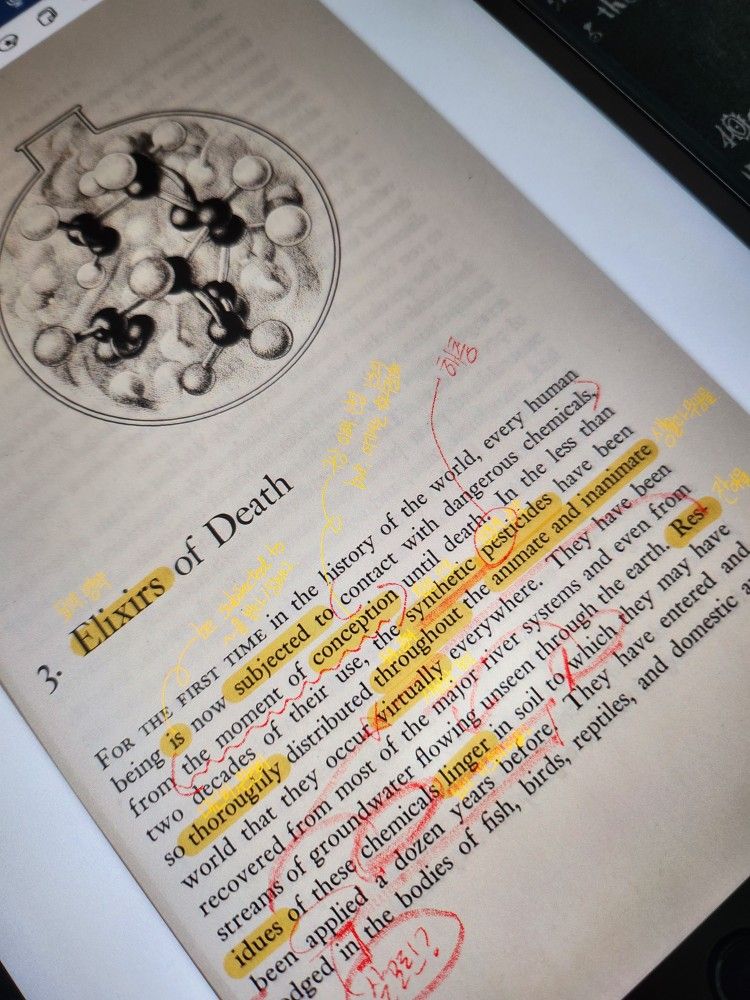 3. Elixirs of Death
FOR THE FIRST TIME in the history of the world, every human
being is now subjected to contact with dangerous chemicals,
from the moment of conception until death. In the less than
two decades of their use, the synthetic pesticides have been
so thoroughly distributed throughout the animate and inanimate
world that they occur virtually everywhere. They have been
recovered from most of the major river systems and even from
streams of groundwater flowing unseen through the earth. Res-
idues of these chemicals linger in soil to which they may have
been applied a dozen years before. They have entered and
lodged in the bodies of fish, birds, reptiles, and domestic a
be subjected to